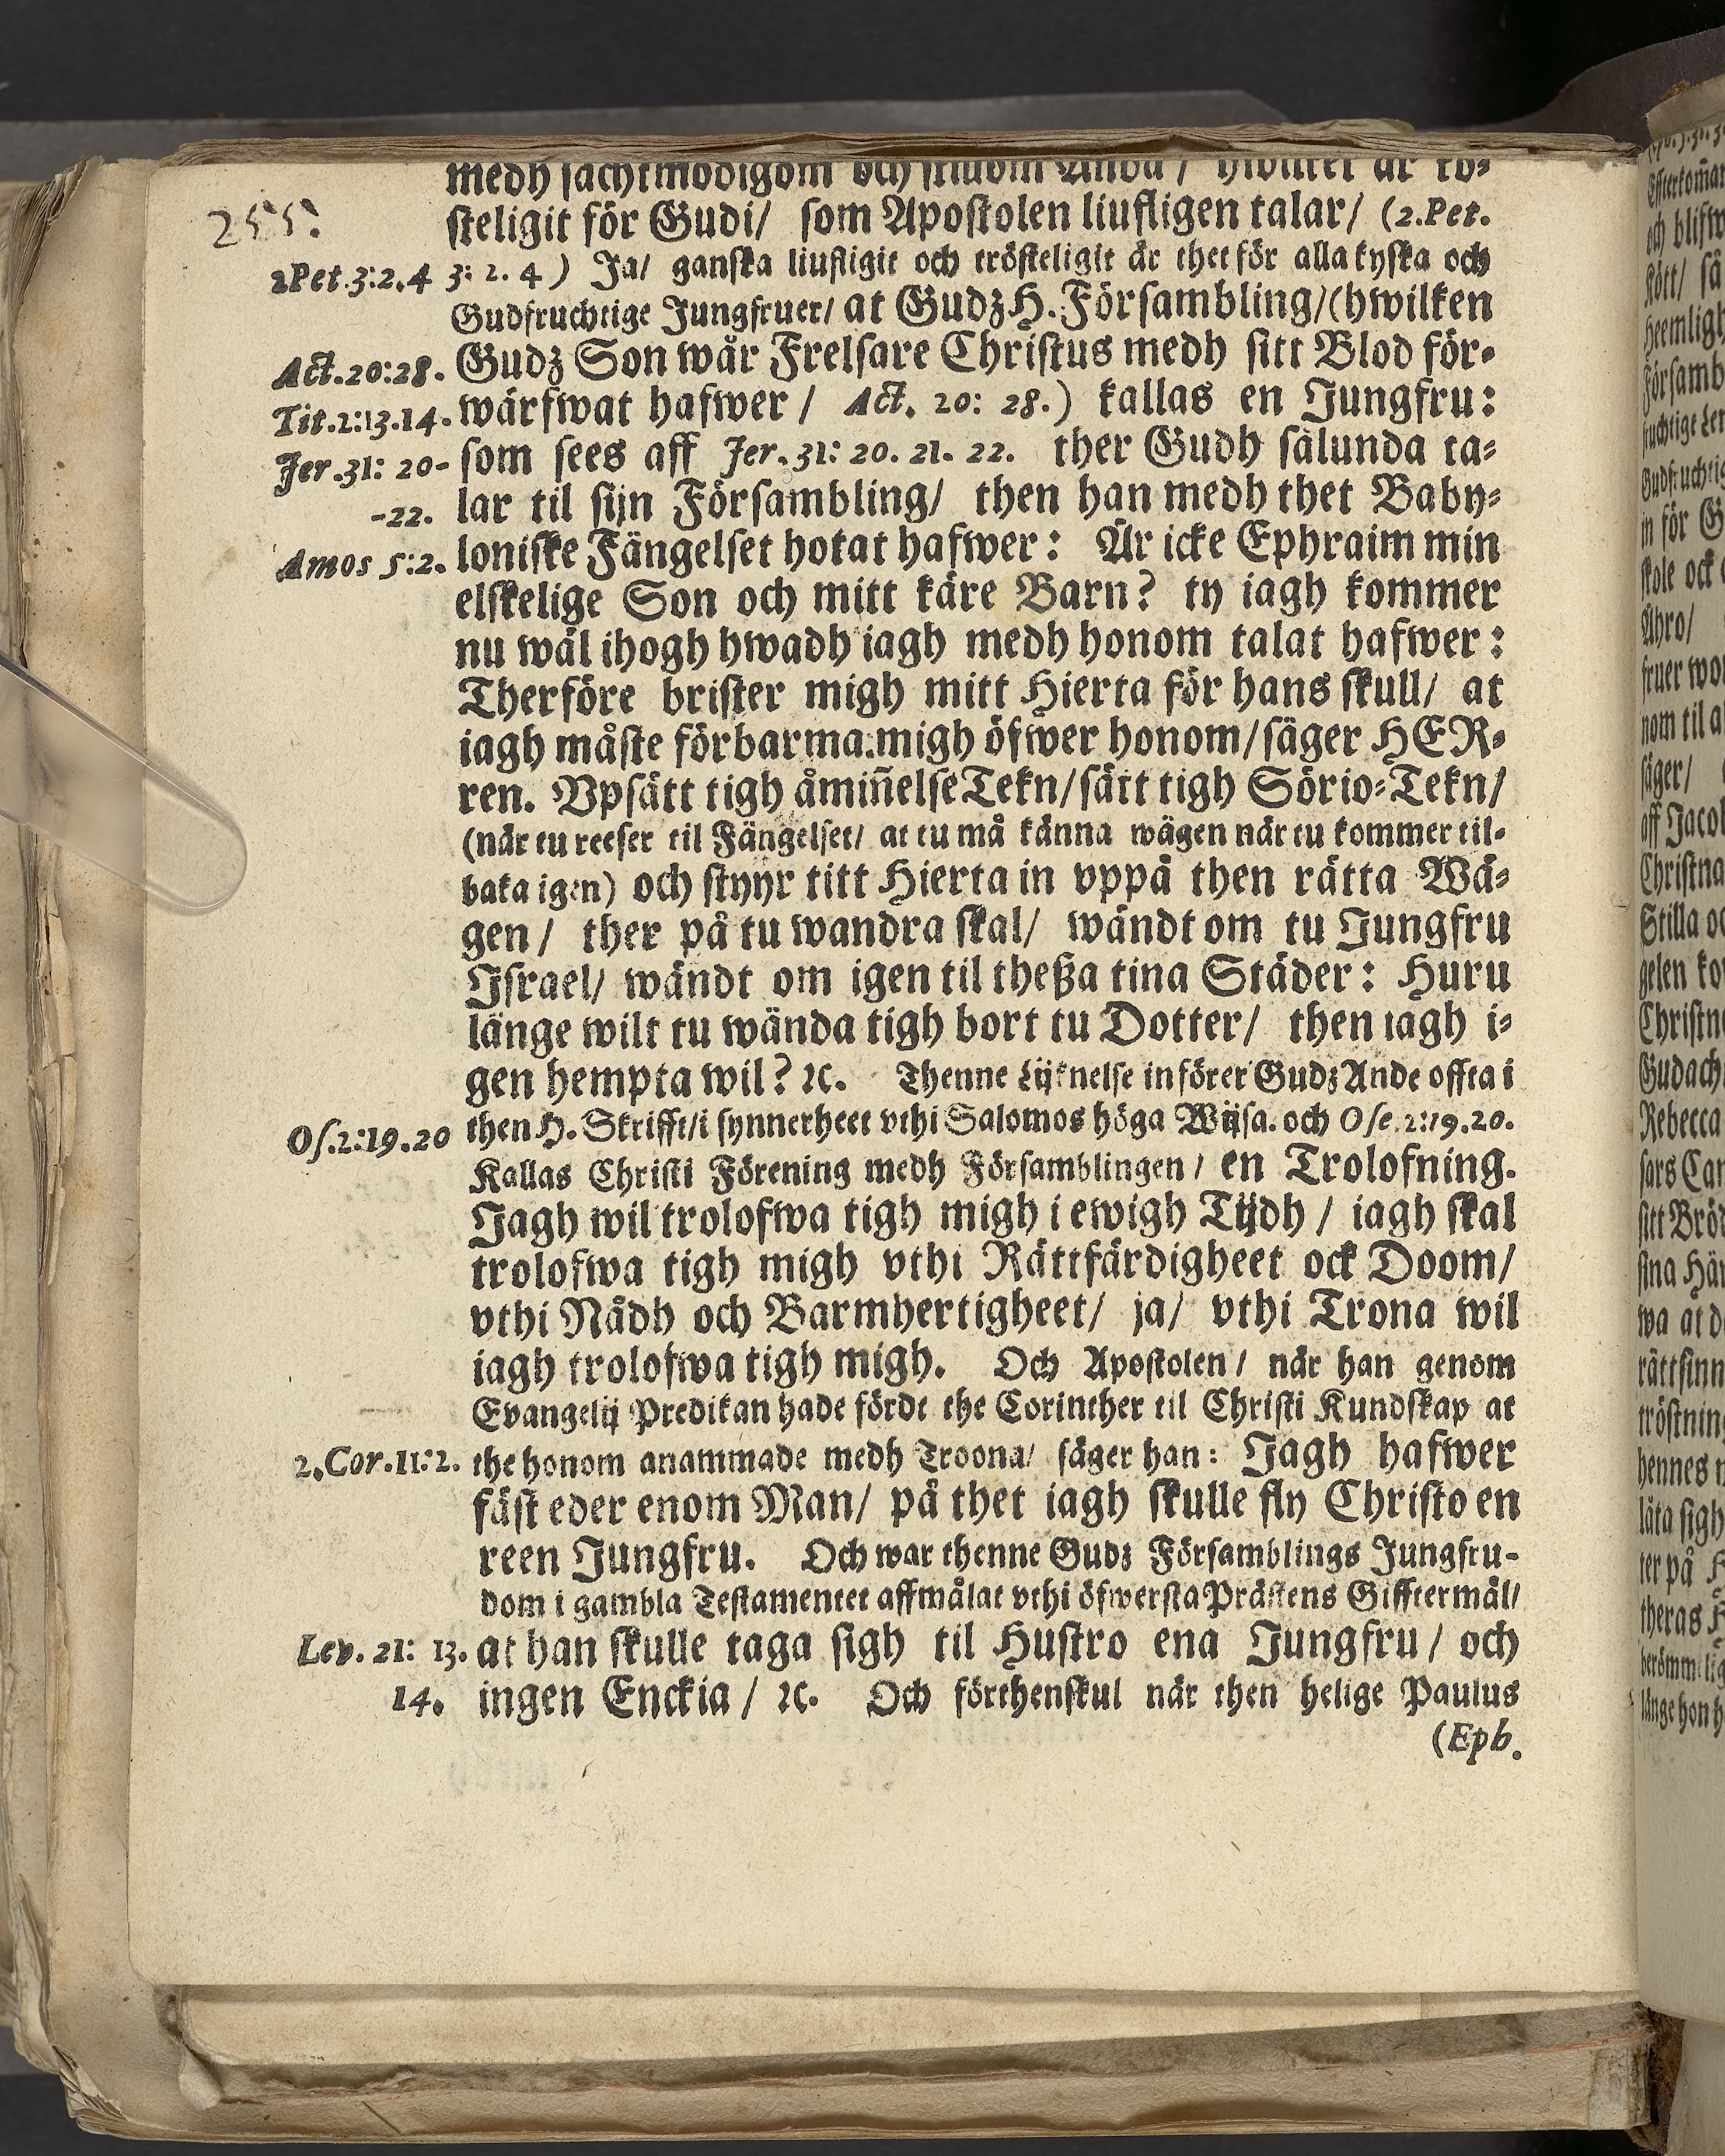 medh sachtmodigom och stillom Anda / hwilket är kå⸗
255.
steligit för Gudi/ som Apostolen liufligen talar/ (2. Pet.
2 Pet. 3:2.4 3: 2. 4 ) Ja/ ganska liufligit och trösteligit är thet för alla kyska och
Gudfruchtige Jungfruer/ at Gudz H. Försambling/ (hwilken
Act. 20:28. Gudz Son wår Frelsare Christus medh sitt Blod för⸗
Tit. 2:13.14. wärfwat hafwer / Act. 20: 28.) kallas en Jungfru:
Jer. 31: 20- som sees aff Jer. 31: 20. 21. 22. ther Gudh sålunda ta⸗
-22. lar til sijn Försambling/ then han medh thet Baby⸗
Amos 5:2. loniske Fängelset hotat hafwer: Är icke Ephraim min
elskelige Son och mitt käre Barn? ty iagh kommer
nu wäl ihogh hwadh iagh medh honom talat hafwer:
Therföre brister migh mitt Hierta för hans skull/ at
iagh måste förbarma migh öfwer honom/ säger HER⸗
ren. Vpsätt tigh åmiñelse Tekn/ sätt tigh Sörio⸗Tekn/
(när tu reeser til Fängelset/ at tu må känna wägen när tu kommer til⸗
baka igen) och styyr titt Hierta in vppå then rätta Wä⸗
gen / ther på tu wandra skal/ wändt om tu Jungfru
Jsrael/ wändt om igen til theßa tina Städer: Huru
länge wilt tu wända tigh bort tu Dotter/ then iagh i⸗
gen hempta wil? ꝛc. Thenne Lijknelse införer Gudz Ande offta i
Os. 2:19.20 then H. Skrifft/ i synnerheet vthi Salomos höga Wijsa. och Ose. 2:19.20.
Kallas Christi Förening medh Församblingen / en Trolofning.
Jagh wil trolofwa tigh migh i ewigh Tijdh / iagh skal
trolofwa tigh migh vthi Rättfärdigheet ock Doom/
vthi Nådh och Barmhertigheet/ ja/ vthi Trona wil
iagh trolofwa tigh migh. Och Apostolen / när han genom
Evangelij Predikan hade fördt the Corinther til Christi Kundskap at
2. Cor. 11:2. the honom anammade medh Troona/ säger han: Jagh hafwer
fäst eder enom Man/ på thet iagh skulle fly Christo en
reen Jungfru. Och war thenne Gudz Församblings Jungfru-
dom i gambla Testamentet affmålat vthi öfwersta Prästens Gifftermål/
Lev. 21: 13. at han skulle taga sigh til Hustro ena Jungfru / och
14. ingen Enckia / ꝛc. Och förthenskul när then helige Paulus
(Eph.